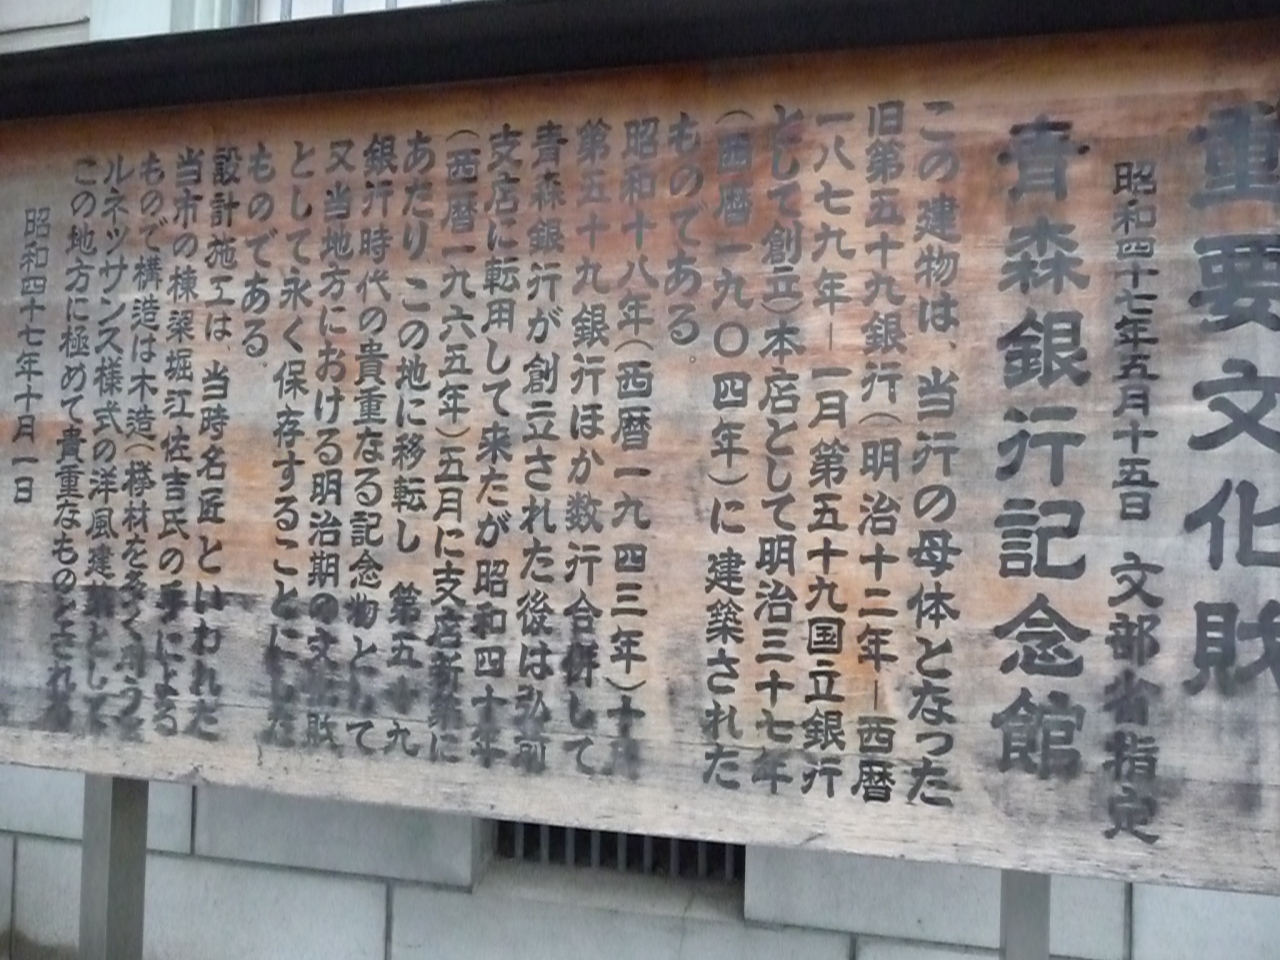 重要文化財
昭和四十七年五月十五日 文部省指定
青森銀行記念館
この建物は、当行の母体となった
旧第五十九銀行(明治十二年―西暦
一八七九年―一月第五十九国立銀行
として創立)本店として明治三十七年
(西暦一九〇四年)に建築された
ものである。
昭和十八年(西暦一九四三年)十月
第五十九銀行ほか数行合併して
青森銀行が創立された後は弘前
支店に転用して来たが昭和四十年
(西暦一九六五年)五月に支店新築に
あたり、この地に移転し 第五十九
銀行時代の貴重なる記念物として
又当地方における明治期の文化財
として永く保存することにした
ものである。
設計施工は、当時名匠といわれた
当市の棟梁堀江佐吉氏の手による
もので構造は木造(欅材を多く用う)
ルネッサンス様式の洋風建築として
この地方に極めて貴重なものとされ
昭和四十七年十月一日